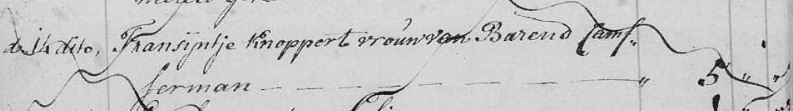 de 14 dito, Fransijntje Knoppert vrouw van Barend Camf„
ferman — — — — — — — „ 5 „ „